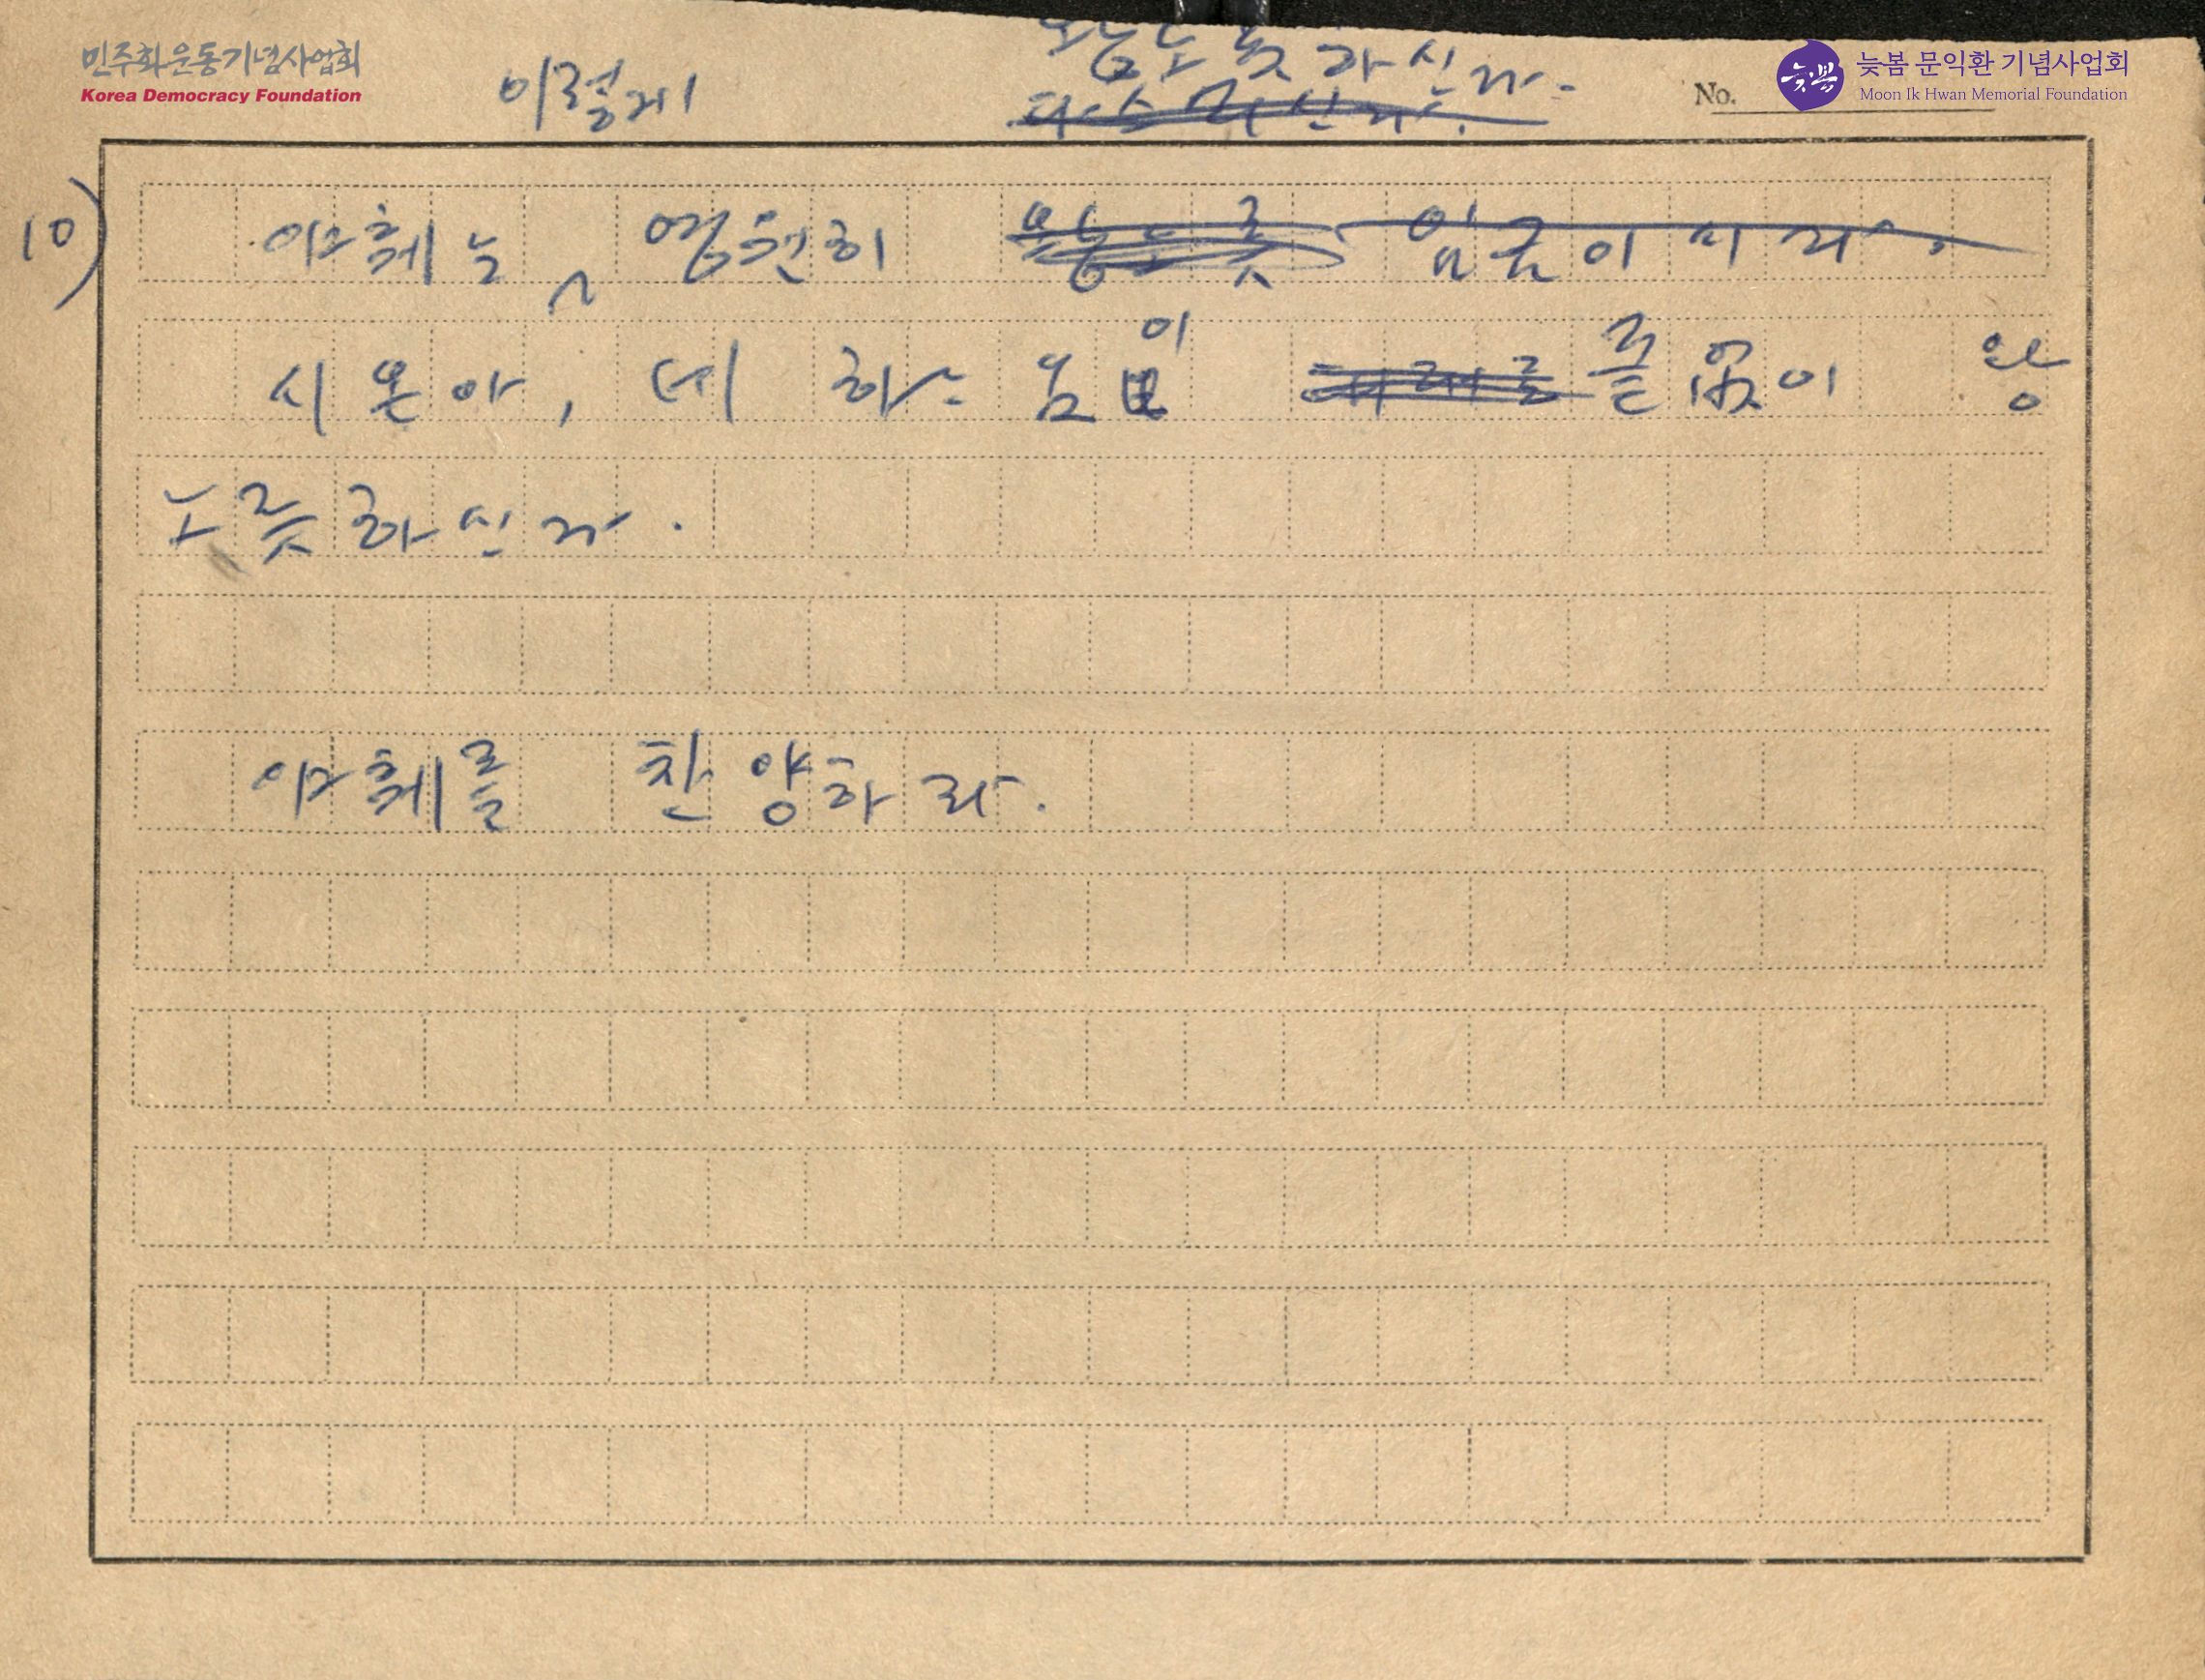 민주화운동기념사업회
Korea Democracy Foundation
늦봄 문익환 기념사업회
Moon Ik Hwan Memorial Foundation
No.
이렇게
노릇하신다.
10)
야훼는 영원히 임금이시라.
시온아, 네 하느님이 끝없이 왕
노릇하신다.
야훼를 찬양하라.